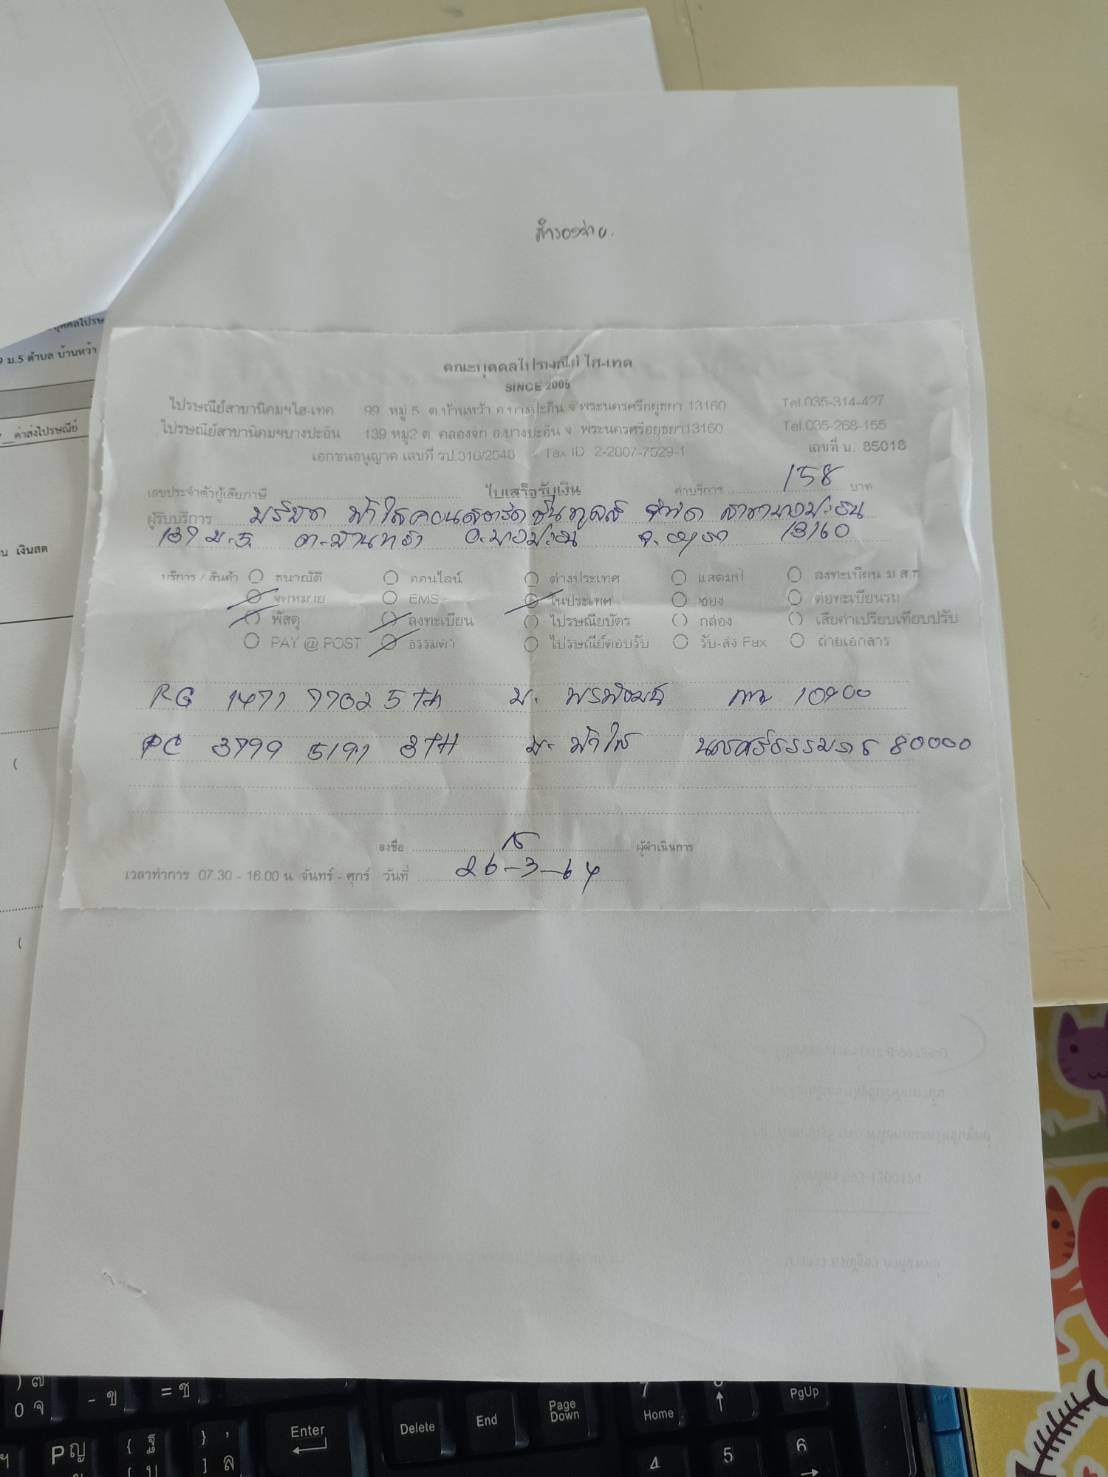 สำรองจ่าย.
คณะบุคคลไปรษณีย์ ไฮ-เทค
SINCE 2005
ไปรษณีย์สาขานิคมฯไฮ-เทค 99 หมู่ 5 ต.บ้านหว้า อ.บางปะอิน จ.พระนครศรีอยุธยา 13160 Tel.035-314-427
ไปรษณีย์สาขานิคมฯบางปะอิน 139 หมู่2 ต. คลองจิก อ.บางปะอิน จ. พระนครศรีอยุธยา13160 Tel.035-268-155
เอกชนอนุญาต เลขที่ รป.316/2548 Tax ID 2-2007-7529-1 เลขที่ น. 85018
เลขประจำตัวผู้เสียภาษี ใบเสร็จรับเงิน ค่าบริการ 158 บาท
ผู้รับบริการ บริษัท ฟ้าใสคอนสตรัคชั่นทูลส์ จำกัด สาขาบางปะอิน
139 ม.5 ต.บ้านหว้า อ.บางปะอิน จ.อยุธยา 13160
บริการ / สินค้า ธนาณัติ ออนไลน์ ต่างประเทศ แสตมป์ ลงทะเบียน ม.ส.ท
จดหมาย EMS ในประเทศ ซอง ต่อทะเบียนรถ
พัสดุ ลงทะเบียน ไปรษณียบัตร กล่อง เสียค่าเปรียบเทียบปรับ
PAY @ POST ธรรมดา ไปรษณีย์ตอบรับ รับ-ส่ง Fax ถ่ายเอกสาร
RG 1471 7702 5 TH บ. กทม 10900
PC 3799 5191 8 TH บ. ฟ้าใส นครศรีธรรมราช 80000
ลงชื่อ ผู้ดำเนินการ
เวลาทำการ 07.30 - 16.00 น. จันทร์ - ศุกร์ วันที่ 26-3-64
ม.5 ตำบล บ้านหว้า
ค่าส่งไปรษณีย์
เงินสด
Enter
Delete
End
Page Down
7 Home
PgUp
4
5
6